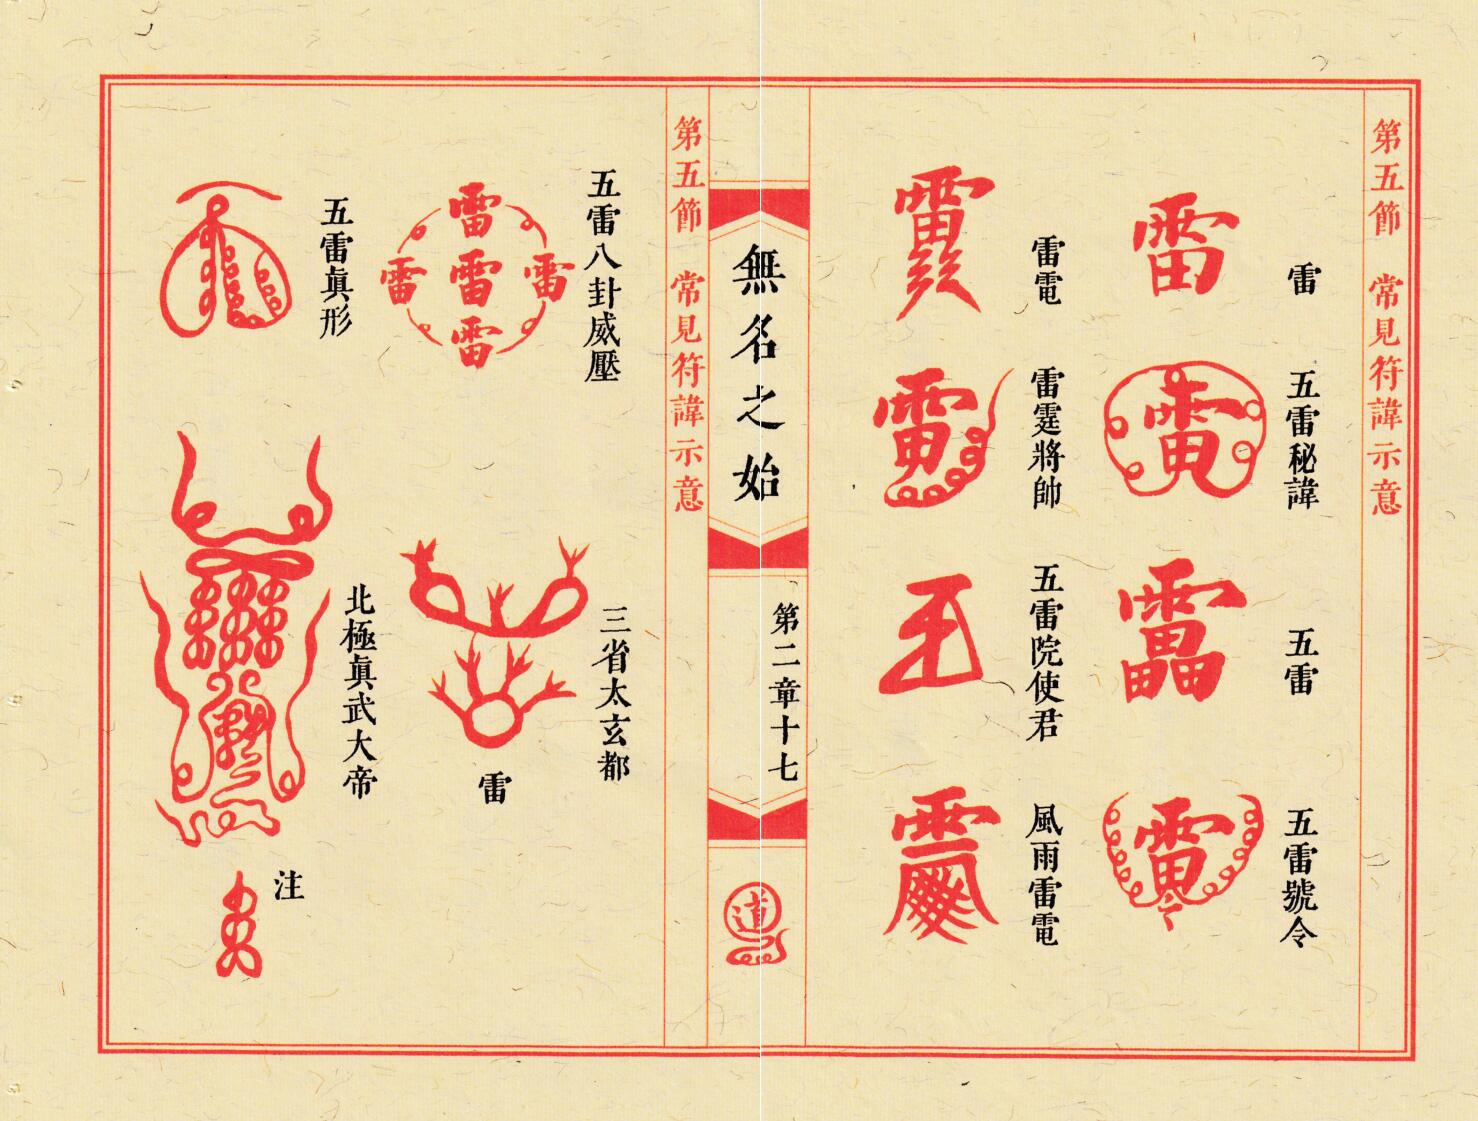 第五節 常見符諱示意
雷
五雷秘諱
五雷
五雷號令
雷電
雷霆將帥
五雷院使君
風雨雷電
無名之始
第二章十七
道
第五節 常見符諱示意
五雷八卦威壓
雷
雷 雷 雷
雷
三省太玄都
雷
五雷眞形
北極眞武大帝
注